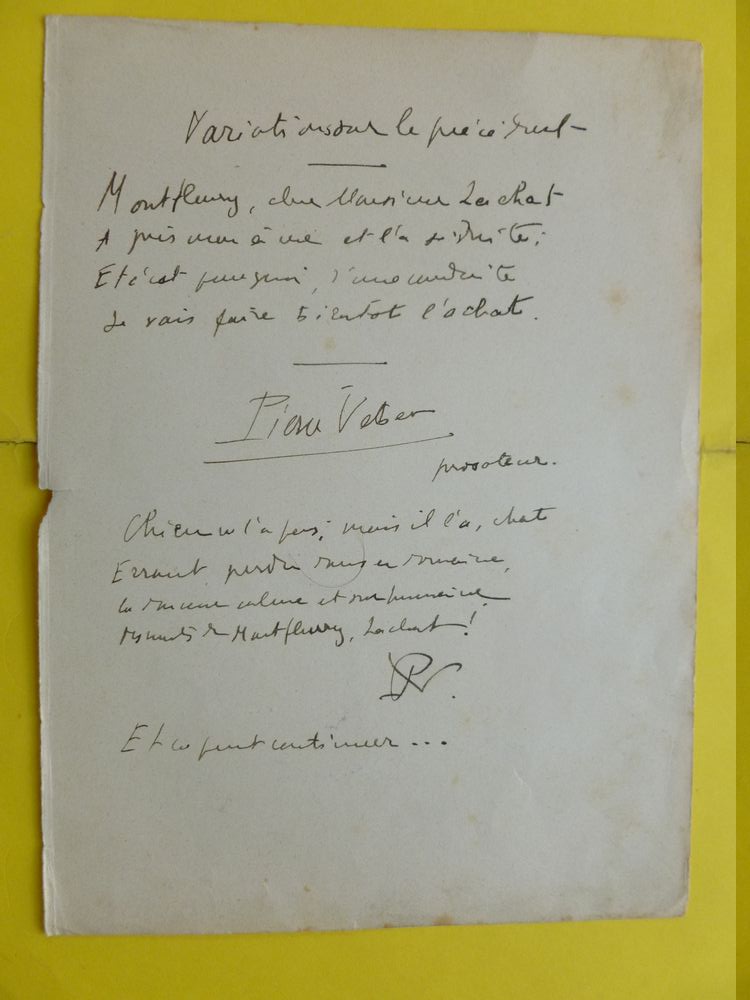 Variations sur le précédent —
Montfleury, cher Monsieur Lachat
A pris mon âme et l'a séduite ;
Et c'est pourquoi, d'une conduite
Je vais faire bientôt l'achat.
Pierre Veber
prosateur.
Chien ne l'a pas ; mais il l'a, chat
Errant perdu dans ce domaine,
la douceur calme et surhumaine
des nuits de Montfleury, Lachat !
PV.
Et ça peut continuer...